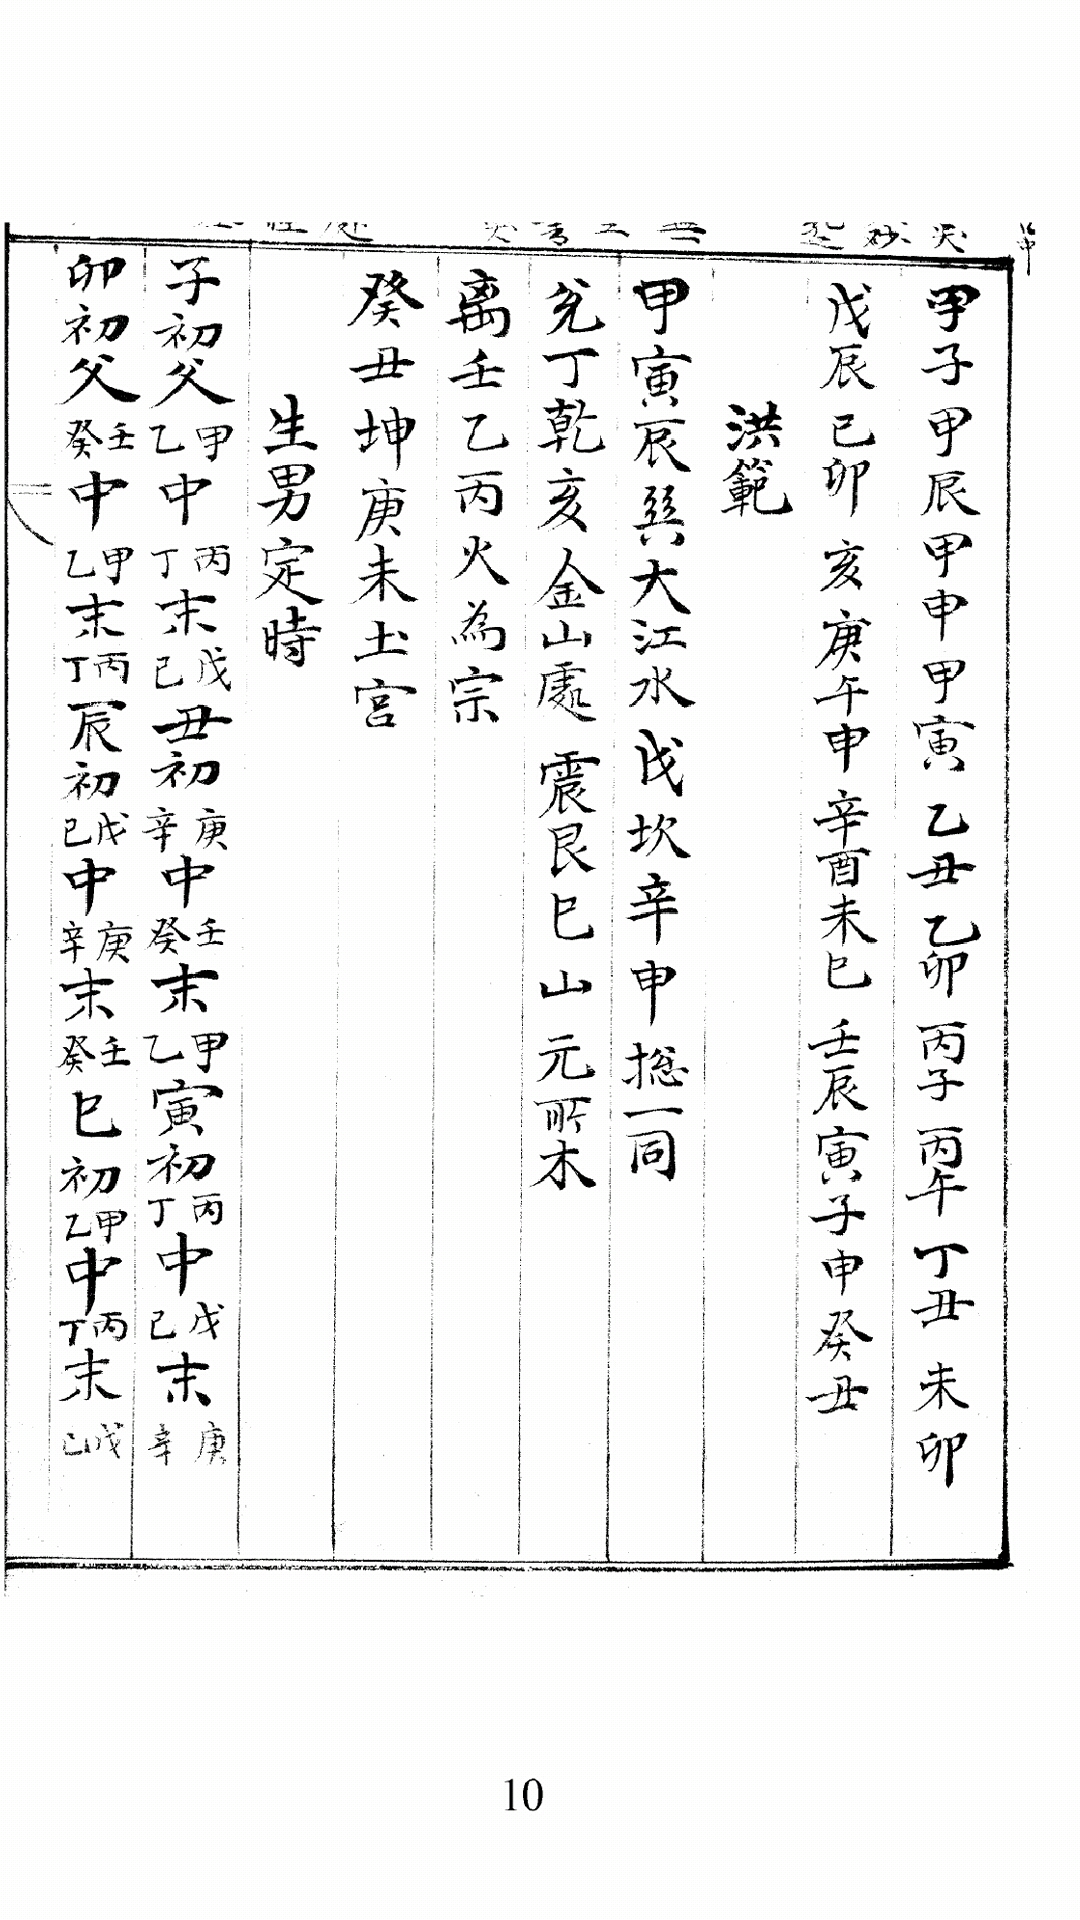 甲子甲辰甲申甲寅乙丑乙卯丙子丙午丁丑未卯
戊辰己卯亥庚午申辛酉未巳壬辰寅子申癸丑
洪範
甲寅辰巽大江水戌坎辛申搃一同
兌丁乾亥金山處震艮巳山元所木
离壬乙丙火為宗
癸丑坤庚未土宮
生男定時
子初父甲乙中丙丁末戊己丑初庚辛中壬癸末甲乙寅初丙丁中戊己末庚辛
卯初父壬癸中甲乙末丙丁辰初戊己中庚辛末壬癸巳初甲乙中丙丁末戊己
10